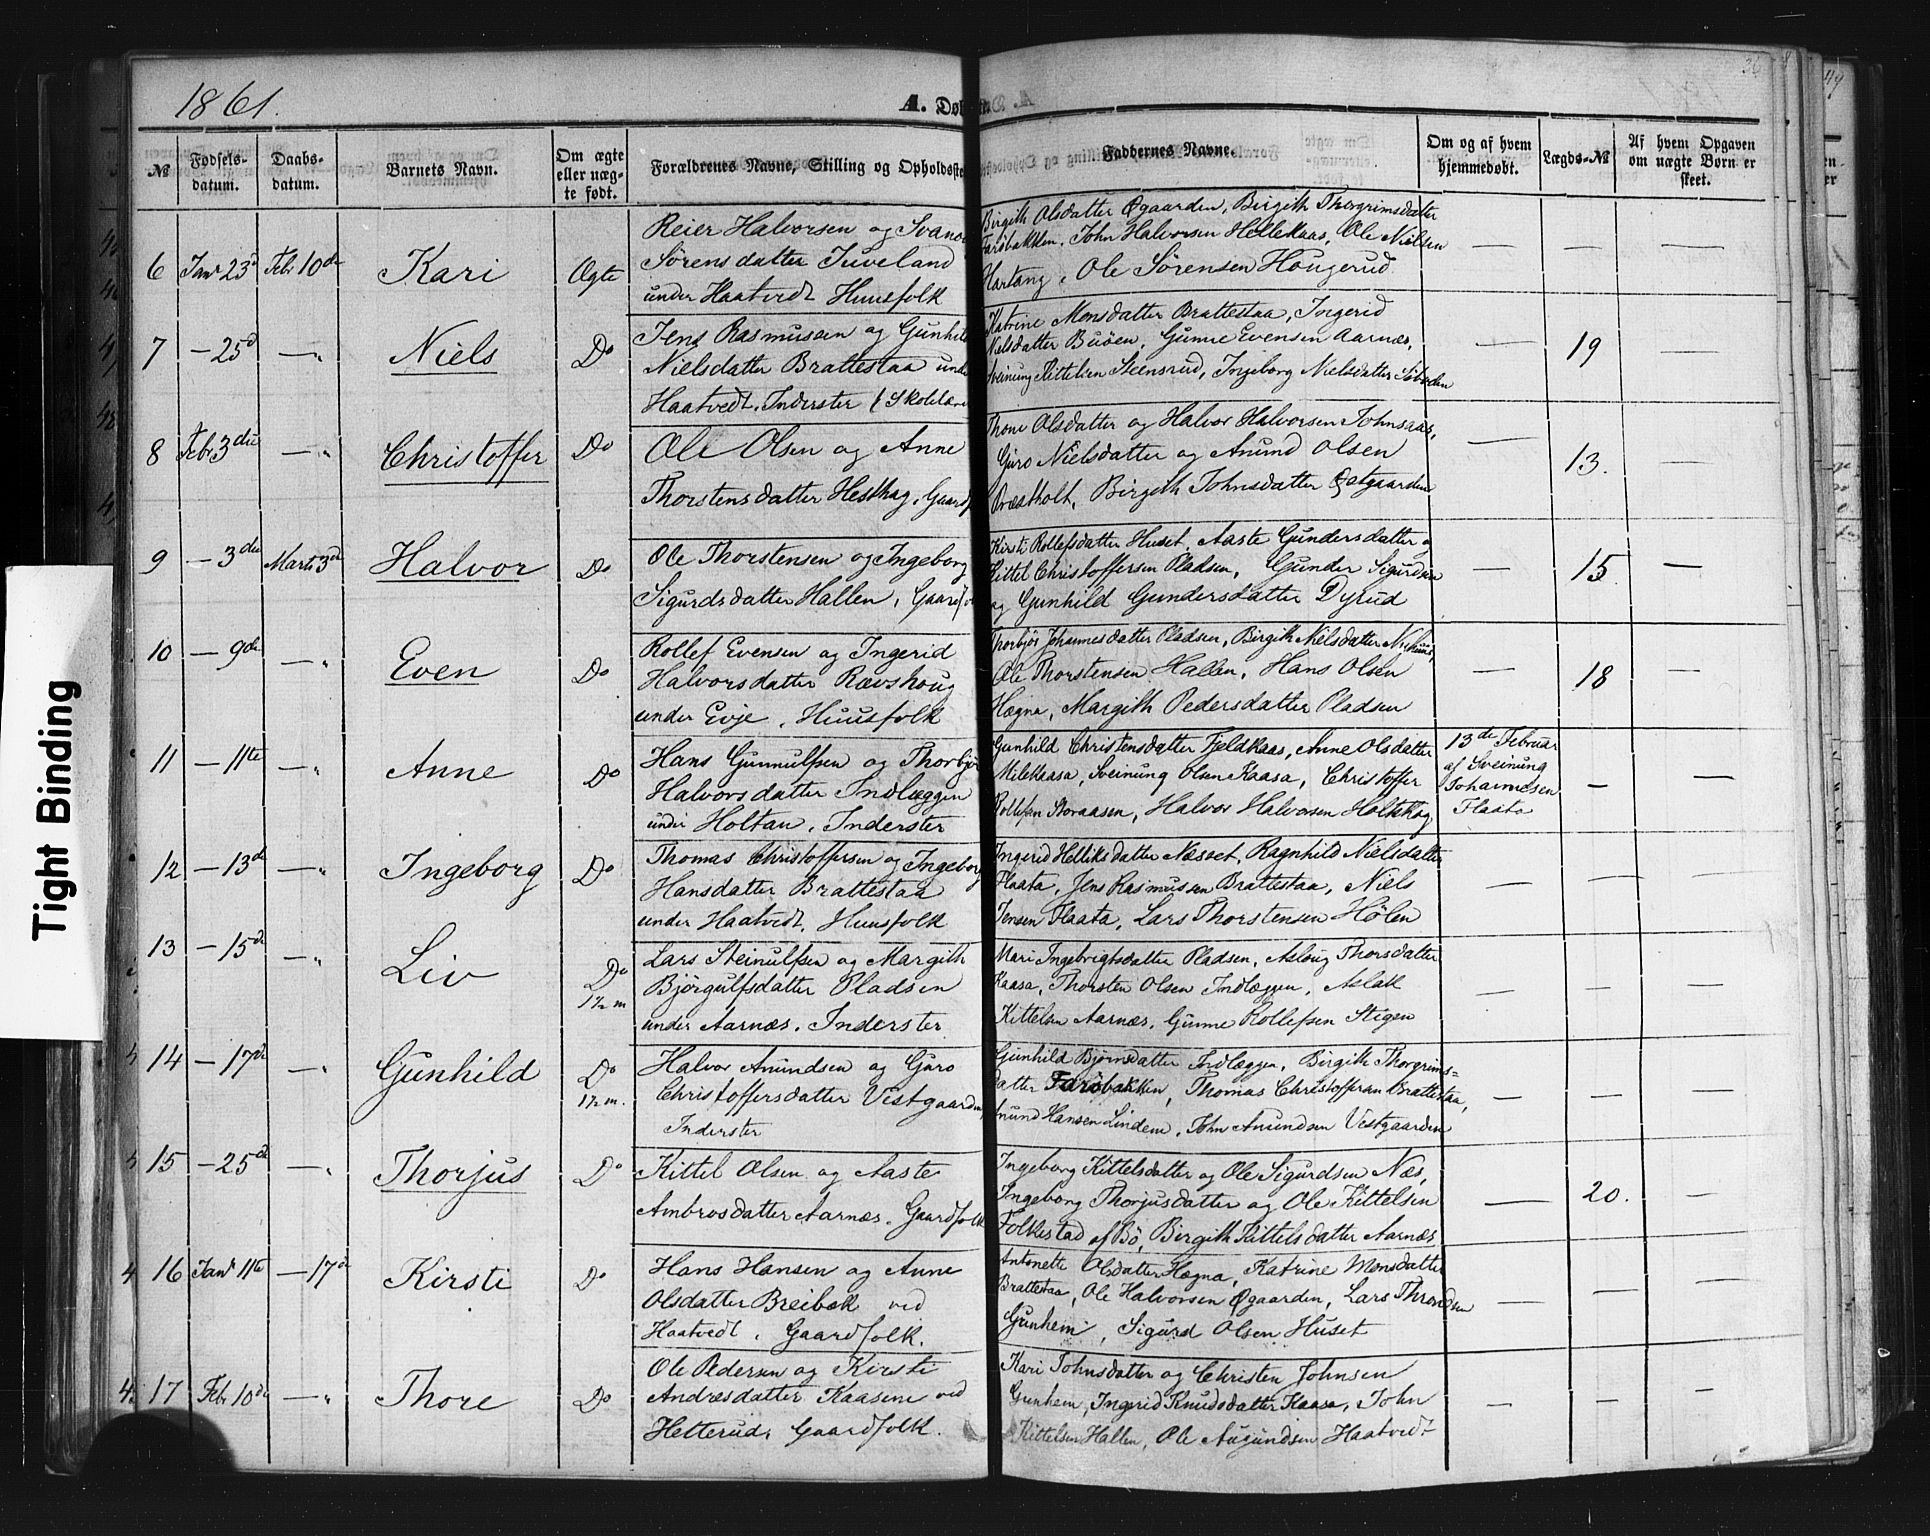 1861.
A. Døb
36
49
№
Fødsels-
datum.
Daabs-
datum.
Barnets Navn.
Om ægte
eller uæg-
te født.
Forældrenes Navne, Stilling og Opholdsste
Faddernes Navne.
Om og af hvem
hjemmedøbt.
Lægds-№
Af hvem Opgaven
om uægte Børn er
skeet.
6 Janr 23d Febr 10de Kari Ægte
Reier Halvorsen og
Sørensdatter Juveland
under Haatvedt Huusfolk
Birgith Olsdatter Øgaarden, Birgith Thorgrimsdatter
Farøbakken, John Halvorsen Hellekaas, Ole Nielsen
Hartang, Ole Sørensen Hougerud
— — —
7 — 25d — „ Niels Do
Jens Rasmussen og Gunhild
Nielsdatter Brattestaa unde
Haatvedt, Inderster
Katrine Monsdatter Brattestaa, Ingerid
Nielsdatter Buøen, Gunne Evensen Aarnæs,
Sveinung Kittelsen Steensrud, Ingeborg Nielsdatter
— 19 —
8 Febr 3die — „ Christoffer Do
Ole Olsen og Anne
Thorstensdatter Hesthag, Gaardf
Thone Olsdatter og Halvor Halvorsen Johnsaas,
Guro Nielsdatter og Anund Olsen
Præstholt, Birgith Johnsdatter Østgaarden
— 13. —
9 — 3die Marts 3die Halvor Do
Ole Thorstensen og Ingeborg
Sigurdsdatter Hallen, Gaardfo
Kirsti Rollefsdatter Huset, Aaste Gundersdatter og
Kittel Christoffersen Pladsen, Gunder Sigurdsen
og Gunhild Gundersdatter Dyrud
— 15 —
10 — 9de — „ Even Do
Rollef Evensen og Ingerid
Halvorsdatter Rævshoug
under Evje, Huusfolk
Thorbjør Johannesdatter Pladsen, Birgith Nielsdatter
Ole Thorstensen Hallen, Hans Olsen
Hægna, Margith Pedersdatter Pladsen
— 18 —
11 — 11te — „ Anne Do
Hans Gunnulfsen og Thorbjør
Halvorsdatter Indlæggen
under Holtan, Inderster
Gunhild Christensdatter Fjeldkaas, Anne Olsdatter
Milekaasa, Sveinung Olsen Kaasa, Christoffer
Rollefsen Storaasen, Halvor Halvorsen Holtskog
13de Februar
af Sveinung
Johannesen
Flaata
— —
12 — 13de — „ Ingeborg Do
Thomas Christoffersen og Ingeborg
Hansdatter Brattestaa
under Haatvedt, Huusfolk
Ingerid Helliksdatter Næsset, Ragnhild Nielsdatter
Flaata, Jens Rasmussen Brattestaa, Niels
Jensen Flaata, Lars Thorstensen Hølen
— — —
13 — 15de — „ Liv Do
1½ m
Lars Steinulfsen og Margith
Bjørgulfsdatter Pladsen
under Aarnæs, Inderster
Mari Ingebrigtsdatter Pladsen, Asloug Thorsdatter
Kaasa, Thorsten Olsen Indlæggen, Aslak
Kittelsen Aarnæs, Gunne Rollefsen Stigen
— — —
14 — 17de — „ Gunhild Do
1½ m.
Halvor Anundsen og Guro
Christoffersdatter Vestgaarden,
Inderster
Gunhild Bjørnsdatter Indlæggen, Birgith Thorgrims=
datter Farøbakken, Thomas Christoffersen Brattestaa,
Anund Hansen Lindem, John Anundsen Vestgaarden
— — —
15 — 25de — „ Thorjus Do
Kittel Olsen og Aaste
Ambrosdatter Aarnæs, Gaardfolk
Ingeborg Kittelsdatter og Ole Sigurdsen Næs,
Ingeborg Thorjusdatter og Ole Kittelsen
Folkestad af Bø, Birgith Kittelsdatter Aarnæs
— 20. —
16 Janr 11te — 17de Kirsti Do
Hans Hansen og Anne
Olsdatter Breibæk ved
Haatvedt, Gaardfolk.
Antonette Olsdatter Hægna, Katrine Monsdatter
Brattestaa, Ole Halvorsen Øgaarden, Lars Throndsen
Gunheim, Sigurd Olsen Huset
— — —
17 Febr 10de — „ Thore Do
Ole Pedersen og Kirsti
Andræsdatter Kaasene ved
Hetterud, Gaardfolk.
Kari Johnsdatter og Christen Johnsen
Gunheim, Ingerid Knudsdatter Kaasa, John
Kittelsen Hallen, Ole Augundsen Haatvedt
— — —
Tight Binding